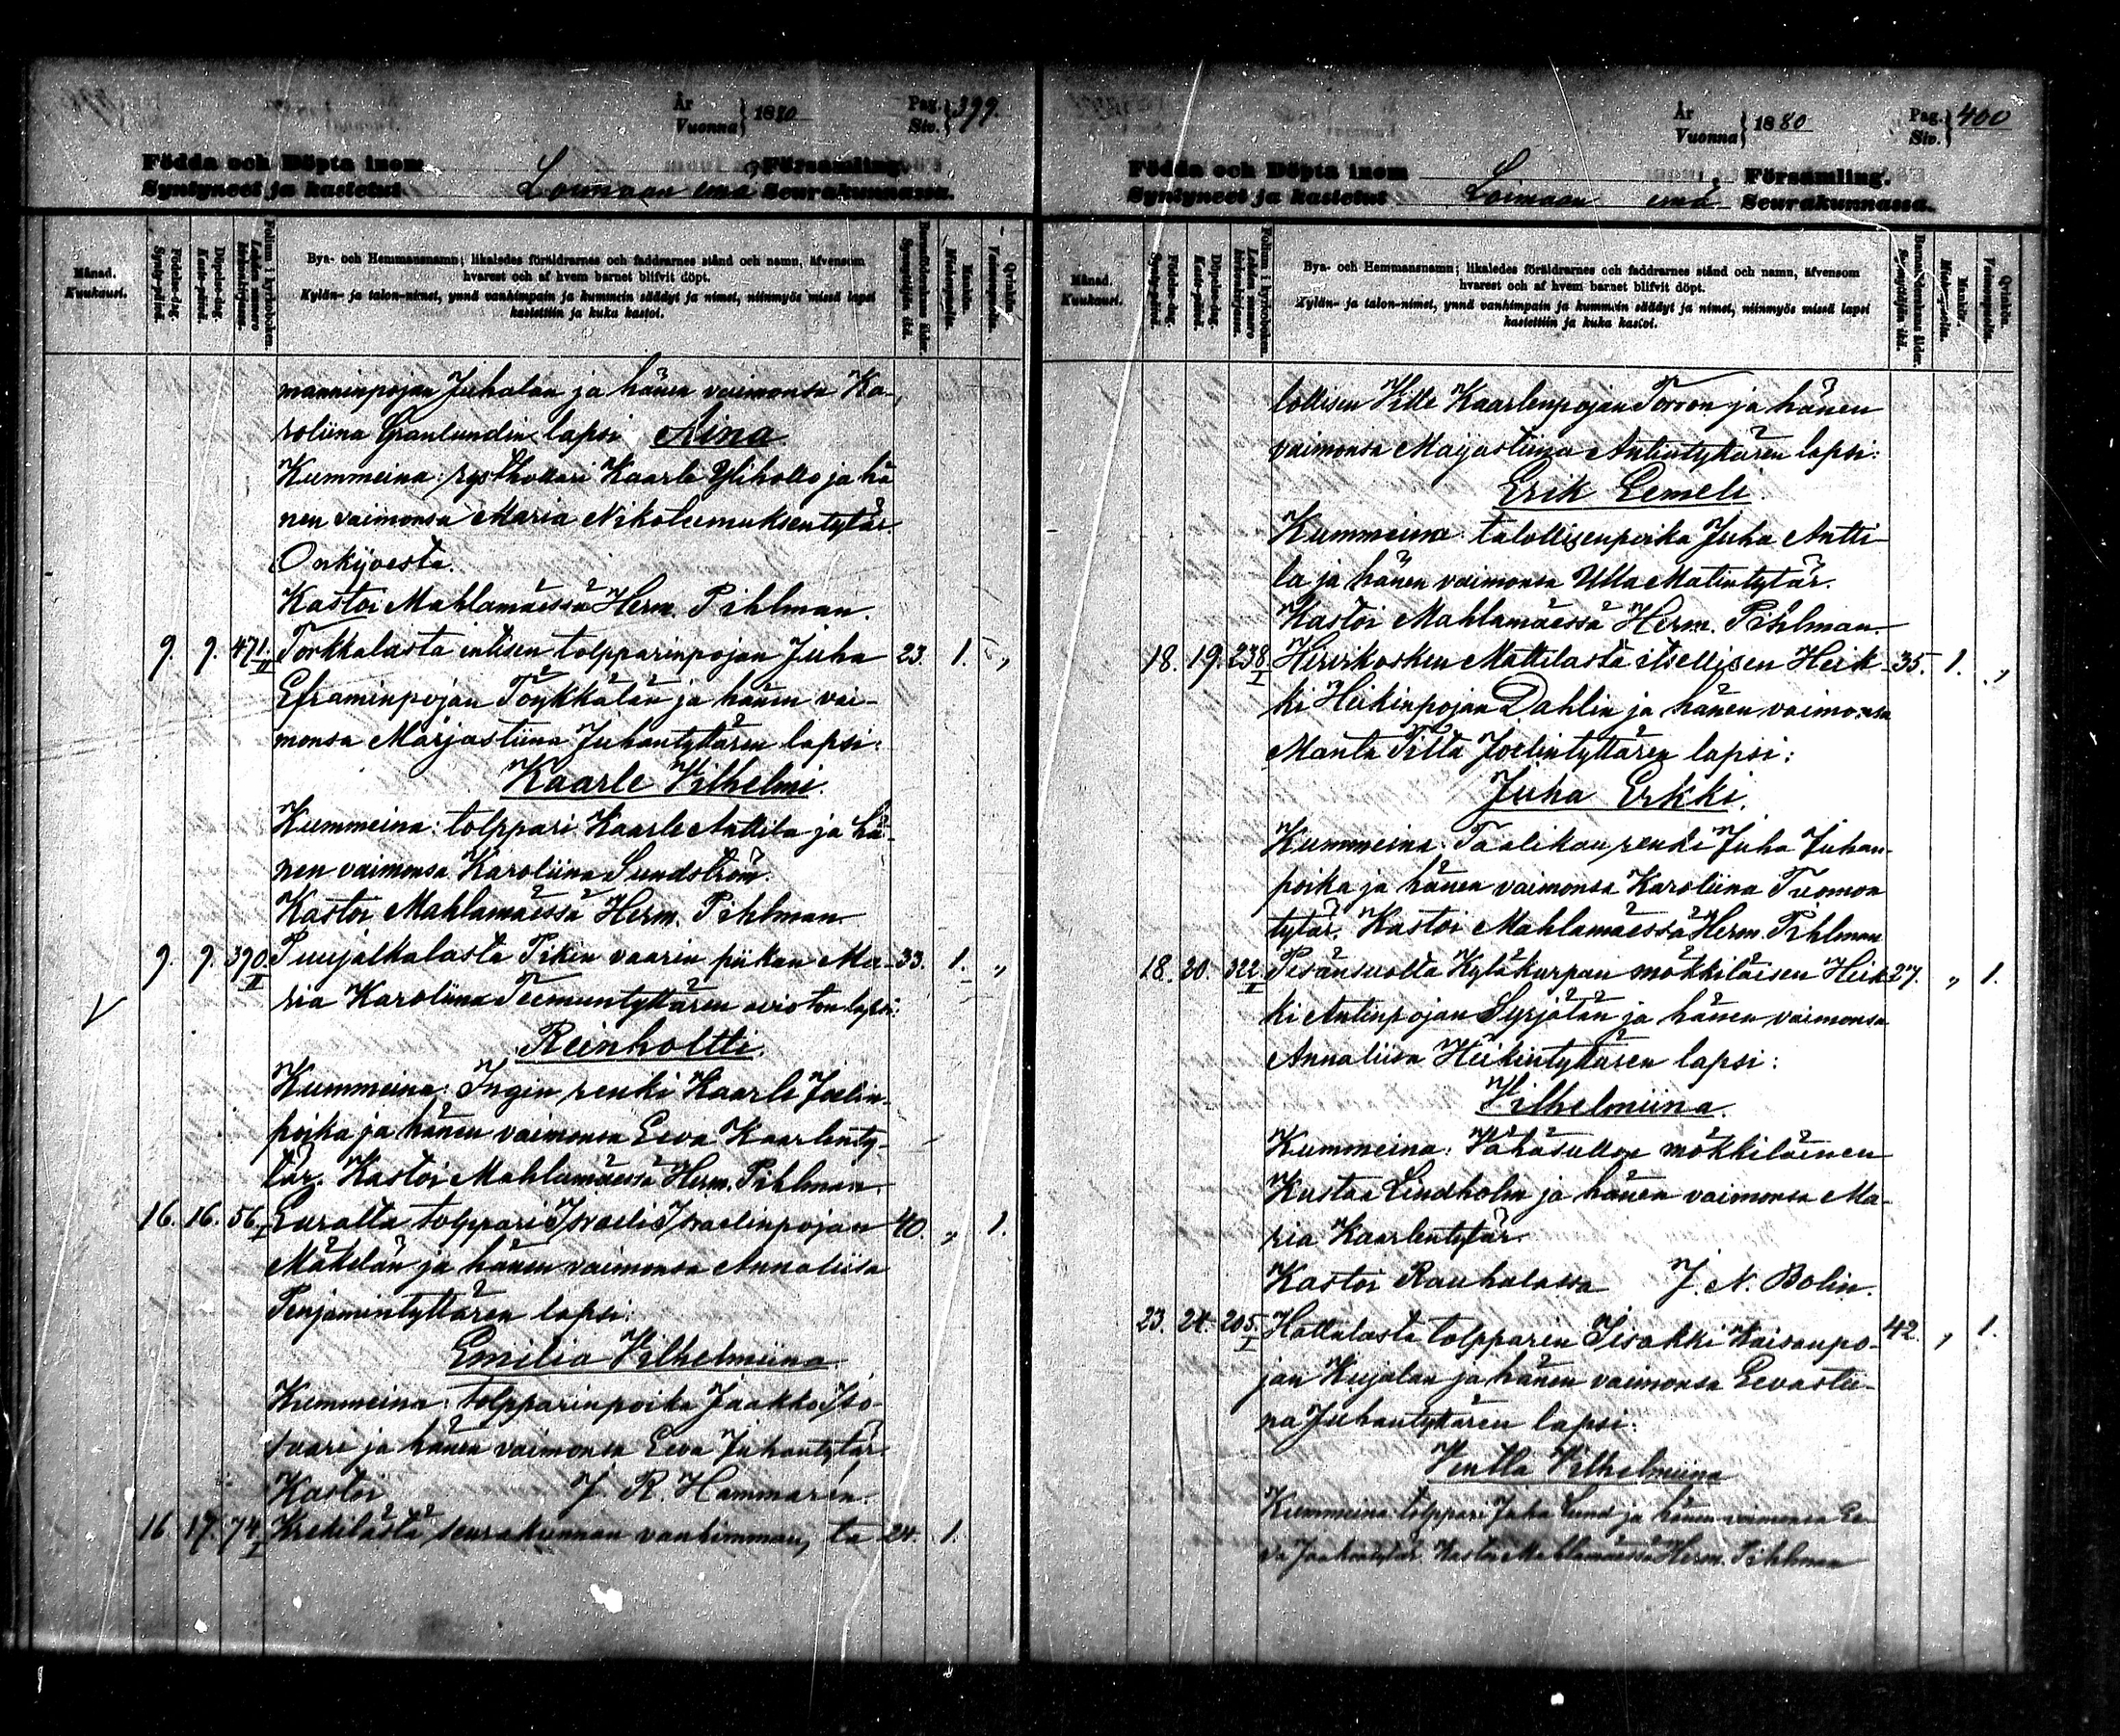 År
Vuonna } 1880 Pag. Siv. } 399.
Födda och Döpta inom Församling.
Syntyneet ja kastetut Loimaan emä Seurakunnassa.
Månad. Kuukausi.
Födelse-dag. Synty-päivä.
Döpelse-dag. Kaste-päivä.
Folium i kyrkoboken. Lehden numero kirkonkirjassa.
Bya- och Hemmansnamn; likaledes föräldrarnes och faddrarnes stånd och namn, äfvensom
hvarest och af hvem barnet blifvit döpt.
Kylän- ja talon-nimet, ynnä vanhimpain ja kummein säädyt ja nimet, niinmyös missä lapsi
kastettiin ja kuka kastoi.
Barnaföderskans ålder. Synnyttäjän ikä.
Mankön. Miehenpuolia.
Qvinkön. Vaimonpuolia.
manninpojan Juhalan ja hänen vaimonsa Ka-
roliina Granlundin lapsi Aina.
Kummeina: rysthollari Kaarle Ylihollo ja hä
nen vaimonsa Maria Nikolemuksentytär
Onkijoesta.
Kastoi Mahlamäessä Herm. Pihlman.
9. 9. 471. II Torkkalasta entisen tolpparinpojan Juha 23. 1. „
Eframinpojan Töykkälän ja hänen vai-
monsa Marjastiina Juhantyttären lapsi:
Kaarle Vilhelmi.
Kummeina: tolppari Kaarle Anttila ja hä-
nen vaimonsa Karoliina Sundström.
Kastoi Mahlamäessä Herm. Pihlman.
9. 9. 390. II Puujalkalasta Pikin vaarin piikan Ma- 33. 1. „
ria Karoliina Teemuntyttären avioton lapsi:
Reinholtti.
Kummeina: Ingin renki Kaarle Joelin-
poika ja hänen vaimonsa Eeva Kaarlenty-
tär. Kastoi Mahlamäessä Herm. Pihlman.
16. 16. 56. I Euralta tolppari Israeli Israelinpojan 40. „ 1.
Mäkelän ja hänen vaimonsa Annaliisa
Penjamintyttären lapsi:
Emilia Vilhelmiina
Kummeina: tolpparinpoika Jaakko Iso-
saari ja hänen vaimonsa Eeva Juhantytär.
Kastoi J. R. Hammarén.
16 17. 74. I Krekilästä seurakunnan vanhimman, ta 24. 1.
År
Vuonna } 1880 Pag. Siv. } 400
Födda och Döpta inom Församling.
Syntyneet ja kastetut Loimaan emä Seurakunnassa.
Månad. Kuukausi.
Födelse-dag. Synty-päivä.
Döpelse-dag. Kaste-päivä.
Folium i kyrkoboken. Lehden numero kirkonkirjassa.
Bya- och Hemmansnamn; likaledes föräldrarnes och faddrarnes stånd och namn, äfvensom
hvarest och af hvem barnet blifvit döpt.
Kylän- ja talon-nimet, ynnä vanhimpain ja kummein säädyt ja nimet, niinmyös missä lapsi
kastettiin ja kuka kastoi.
Barnaföderskans ålder. Synnyttäjän ikä.
Mankön. Miehenpuolia.
Qvinkön. Vaimonpuolia.
lollisen Ville Kaarlenpojan Torron ja hänen
vaimonsa Maijastiina Antintyttären lapsi:
Erik Eemeli.
Kummeina: talollisenpoika Juha Antti-
la ja hänen vaimonsa Ulla Matintytär.
Kastoi Mahlamäessä Herm. Pihlman.
18. 19. 238 I Hirvikosken Mattilasta itsellisen Heik- 35. 1. „
ki Heikinpojan Dahlin ja hänen vaimonsa
Manta Tilta Joelintyttären lapsi:
Juha Erkki.
Kummeina: Taalikan renki Juha Juhan-
poika ja hänen vaimonsa Karoliina Tuomon
tytär. Kastoi Mahlamäessä Herm. Pihlman
18. 20. 322 I Pesänsuolta Kyläkarpan mökkiläisen Heik- 27. „ 1.
ki Antinpojan Syrjälän ja hänen vaimonsa
Annaliisa Heikintyttären lapsi:
Vilhelmiina.
Kummeina: Vähäsullon mökkiläinen
Kustaa Lindholm ja hänen vaimonsa Ma-
ria Kaarlentytär.
Kastoi Rauhalassa J. N. Bolin.
23. 24. 205. I Hattalasta tolpparin Iisakki Kaisanpo- 42. „ 1.
jan Kujalan ja hänen vaimonsa Eevastii-
na Juhantyttären lapsi:
Ventla Vilhelmiina
Kummeina: tolppari Juha Lund ja hänen vaimonsa Ee-
va Jaakontytär. Kastoi Mahlamäessä Herm. Pihlman